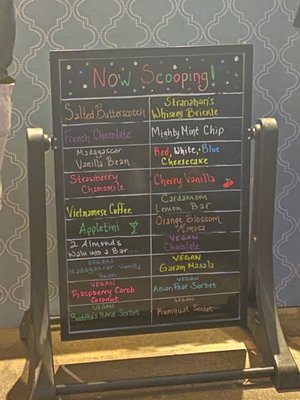 Now Scooping!
Salted Butterscotch
Stranahan's
Whiskey Brickle
French Chocolate
Mighty Mint Chip
Madagascar
Vanilla Bean
Red, White, Blue
Cheesecake
Strawberry
Chamomile
Cherry Vanilla
Vietnamese Coffee
Cardamom
Lemon Bar
Appletini
Orange Blossom
Mimosa
2 Almonds
Walk into a Bar...
VEGAN
Chocolate
VEGAN
Madagascar Vanilla
Bean
VEGAN
Garam Masala
VEGAN
Raspberry Carob
Coconut
VEGAN
Asian Pear Sorbet
VEGAN
Buddha's Hand Sorbet
VEGAN
Kumquat Sorbet